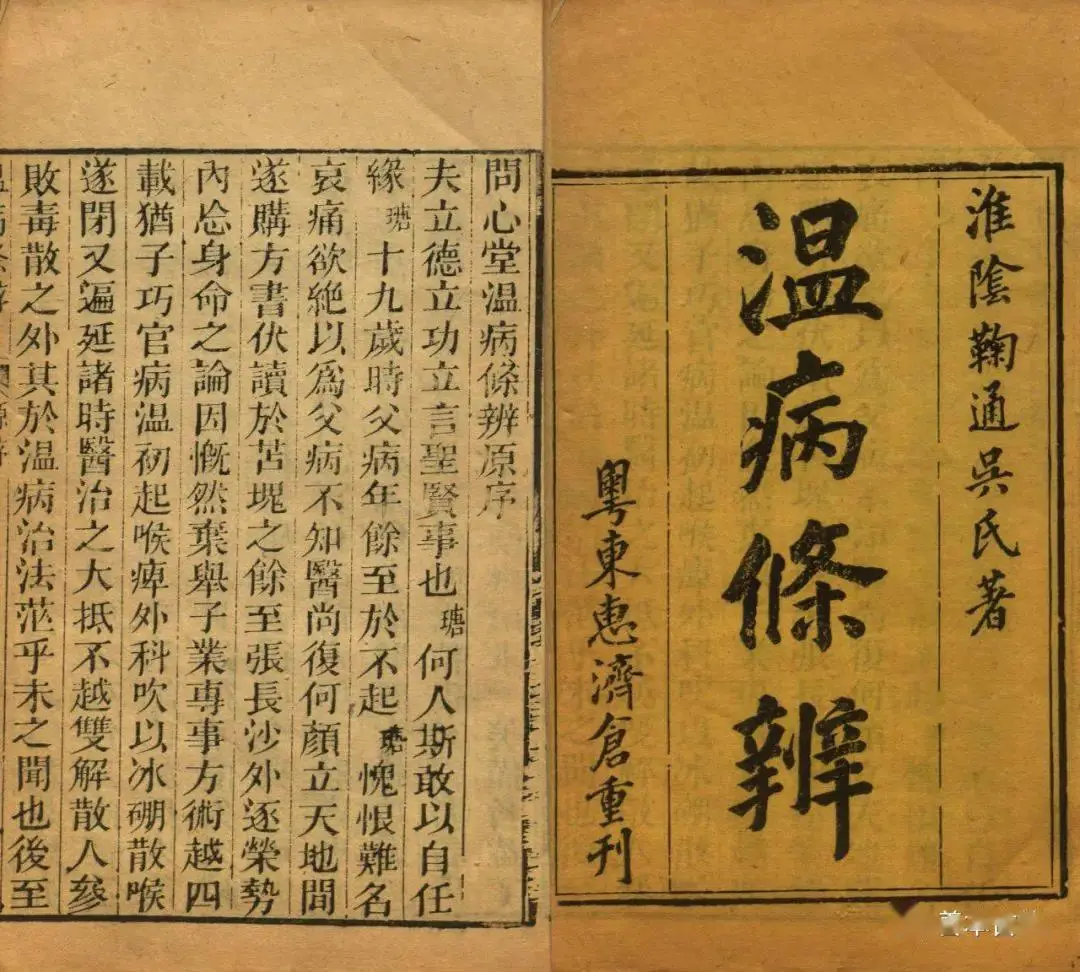 淮陰鞠通吳氏著
溫病條辨
粵東惠濟倉重刊
問心堂溫病條辨原序
夫立德立功立言聖賢事也瑭何人斯敢以自任
緣瑭十九歲時父病年餘至於不起瑭愧恨難名
哀痛欲絕以爲父病不知醫尚復何顏立天地間
遂購方書伏讀於苫塊之餘至張長沙外逐榮勢
內忘身命之論因慨然棄舉子業專事方術越四
載猶子巧官病溫初起喉痺外科吹以冰硼散喉
遂閉又遍延諸時醫治之大抵不越雙解散人參
敗毒散之外其於溫病治法茫乎未之聞也後至